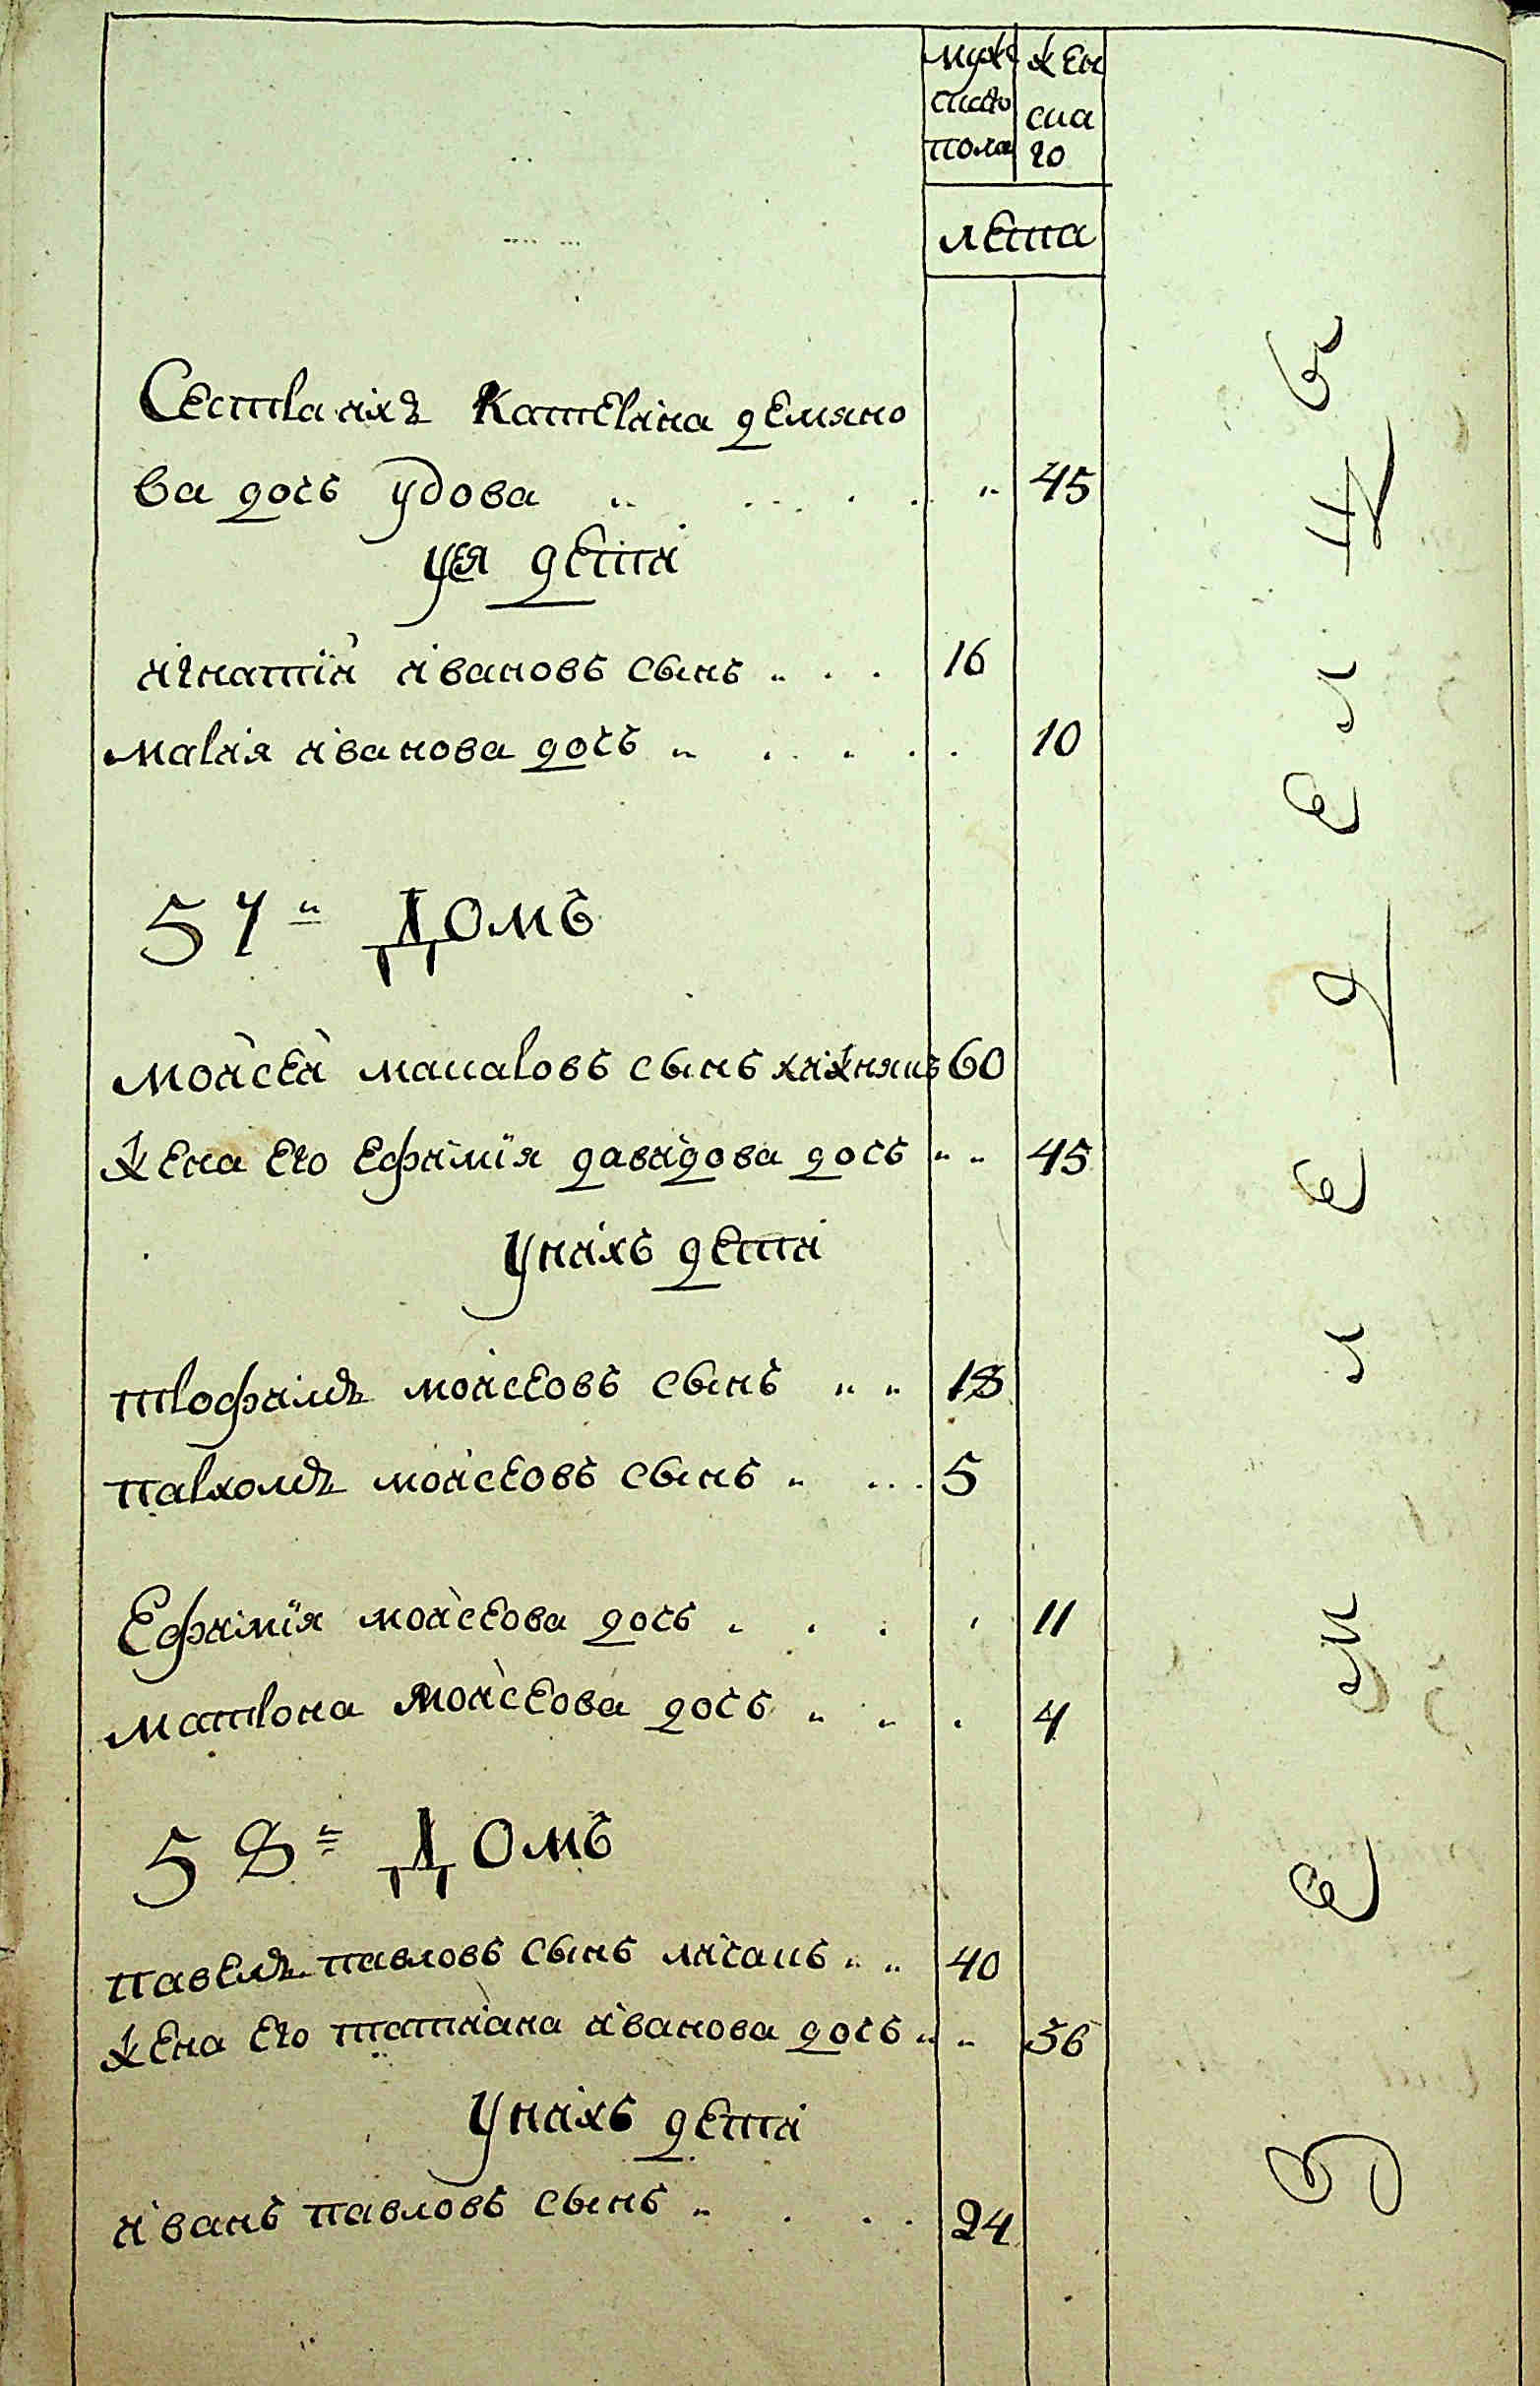 муж жен
скаго ска
пола го
лета
Сестра ихъ Катерина демяно
ва дочь удова 45
уея дети
игнатїй ивановъ сынъ 16
мария иванова дочь 10
57й Домъ
моисей макаровъ сынъ хижнякъ 60
жена его ефимїя давидова дочь 45
Унихъ дети
трофимъ моисеовъ сынъ 18
пархомъ моисеовъ сынъ 5
Ефимїя моисеова дочь 11
матрона моисеова дочь 4
58й Домъ
павелъ павловъ сынъ личакъ 40
жена его татиана иванова дочь 36
Унихъ дети
иванъ павловъ сынъ 24